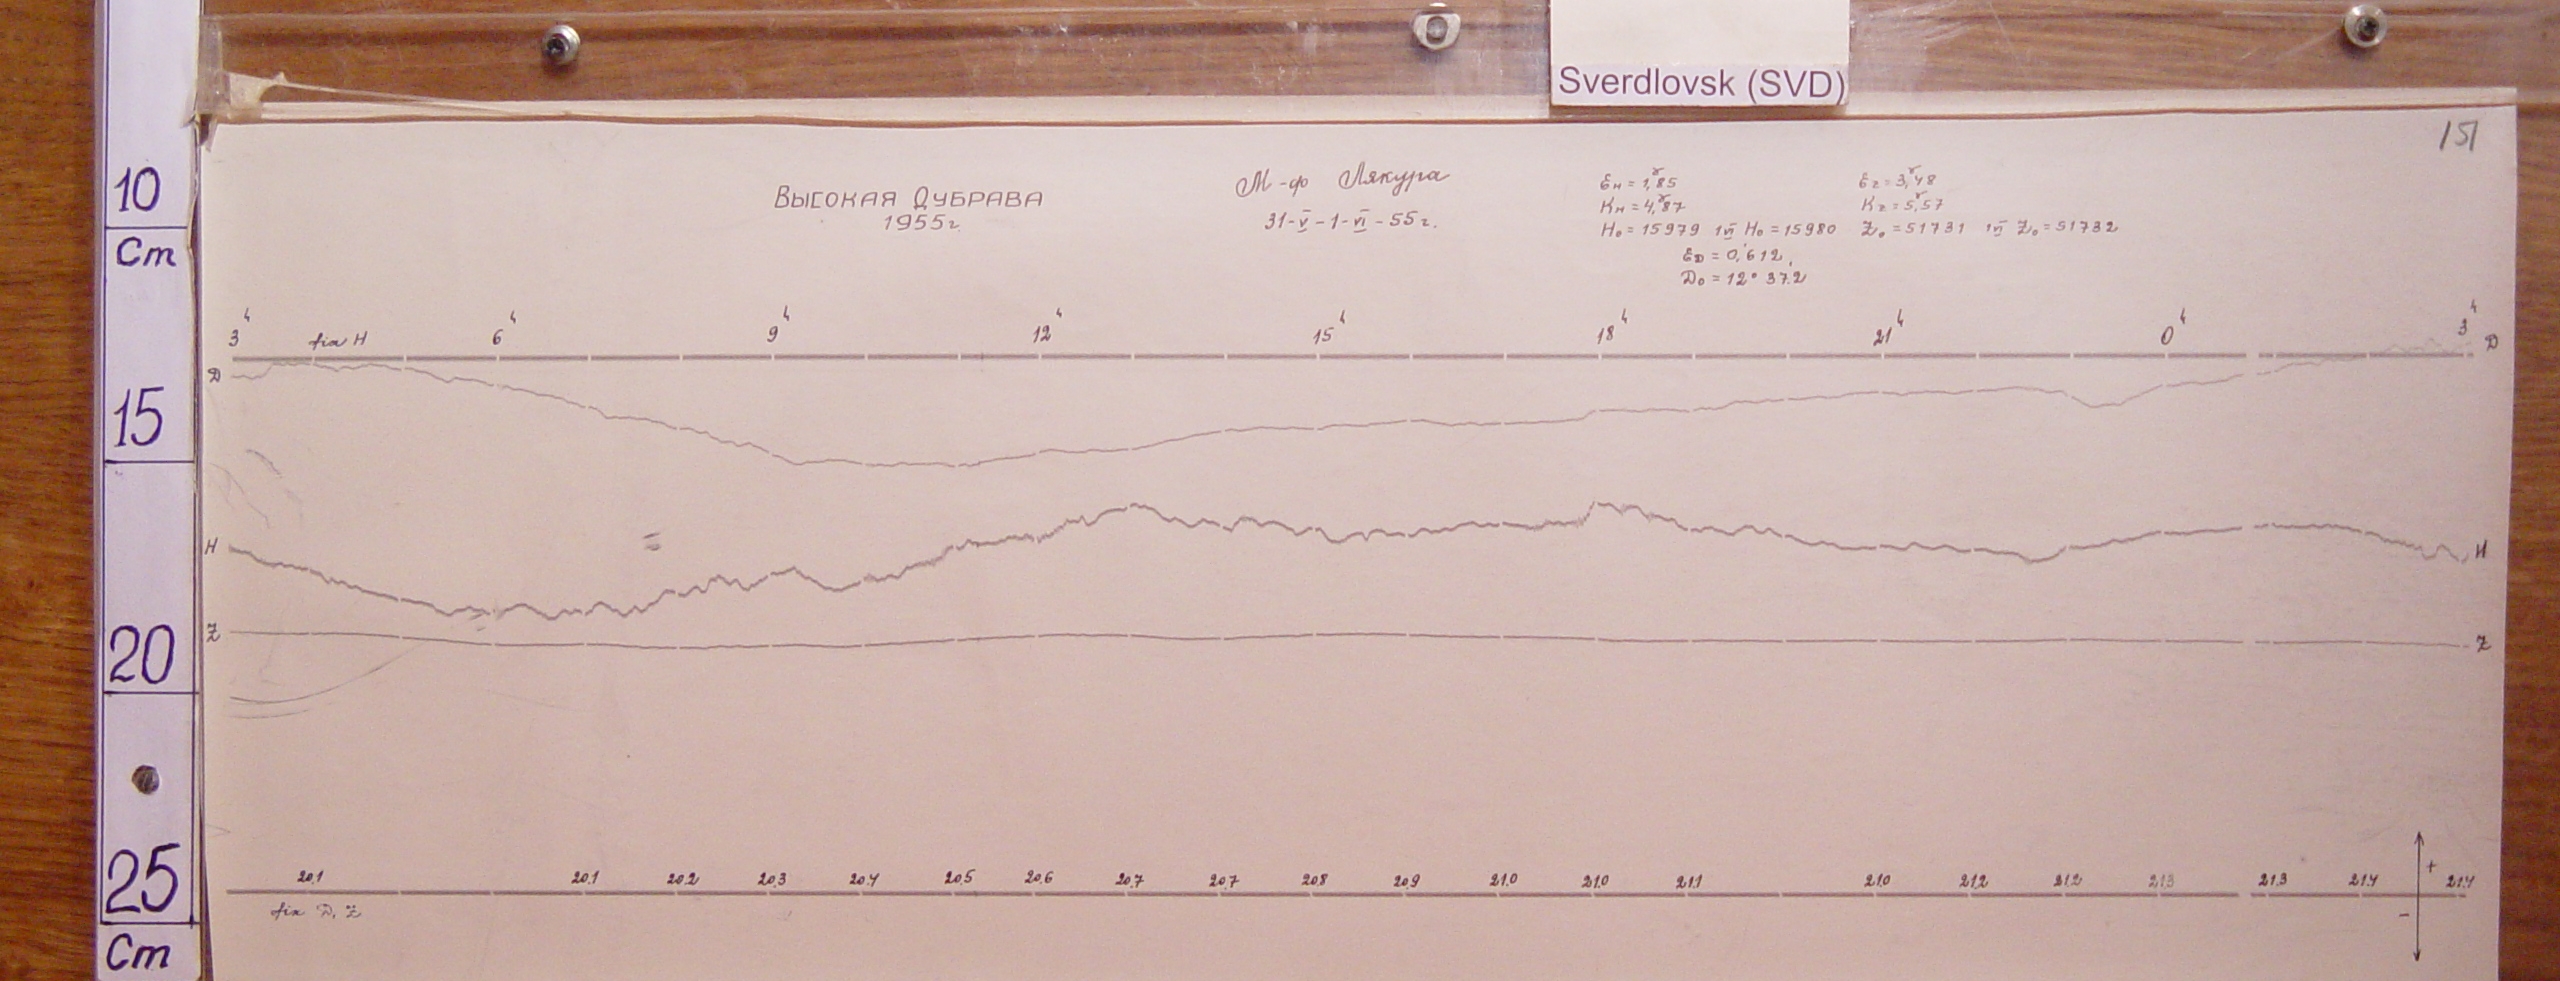 Sverdlovsk (SVD)
151
10
Cm
15
20
25
Cm
ВЫСОКАЯ ДУБРАВА
1955г.
М-ф Лякура
31-V-1-VI-55г.
Ɛн = 1,ˠ85
Kн = 4,ˠ87
H₀ = 15979 1VI H₀ = 15980
Ɛz = 3,ˠ48
Kz = 5,ˠ57
Z₀ = 51731 1VI Z₀ = 51732
ƐD = 0,'612
D₀ = 12° 37,'2
3ч fix H 6ч 9ч 12ч 15ч 18ч 21ч 0ч 3ч
D D
H H
Z Z
20.1 20.1 20.2 20.3 20.4 20.5 20.6 20.7 20.7 20.8 20.9 21.0 21.0 21.1 21.0 21.2 21.2 21.3 21.3 21.4 21.4
fix D, Z
+
−